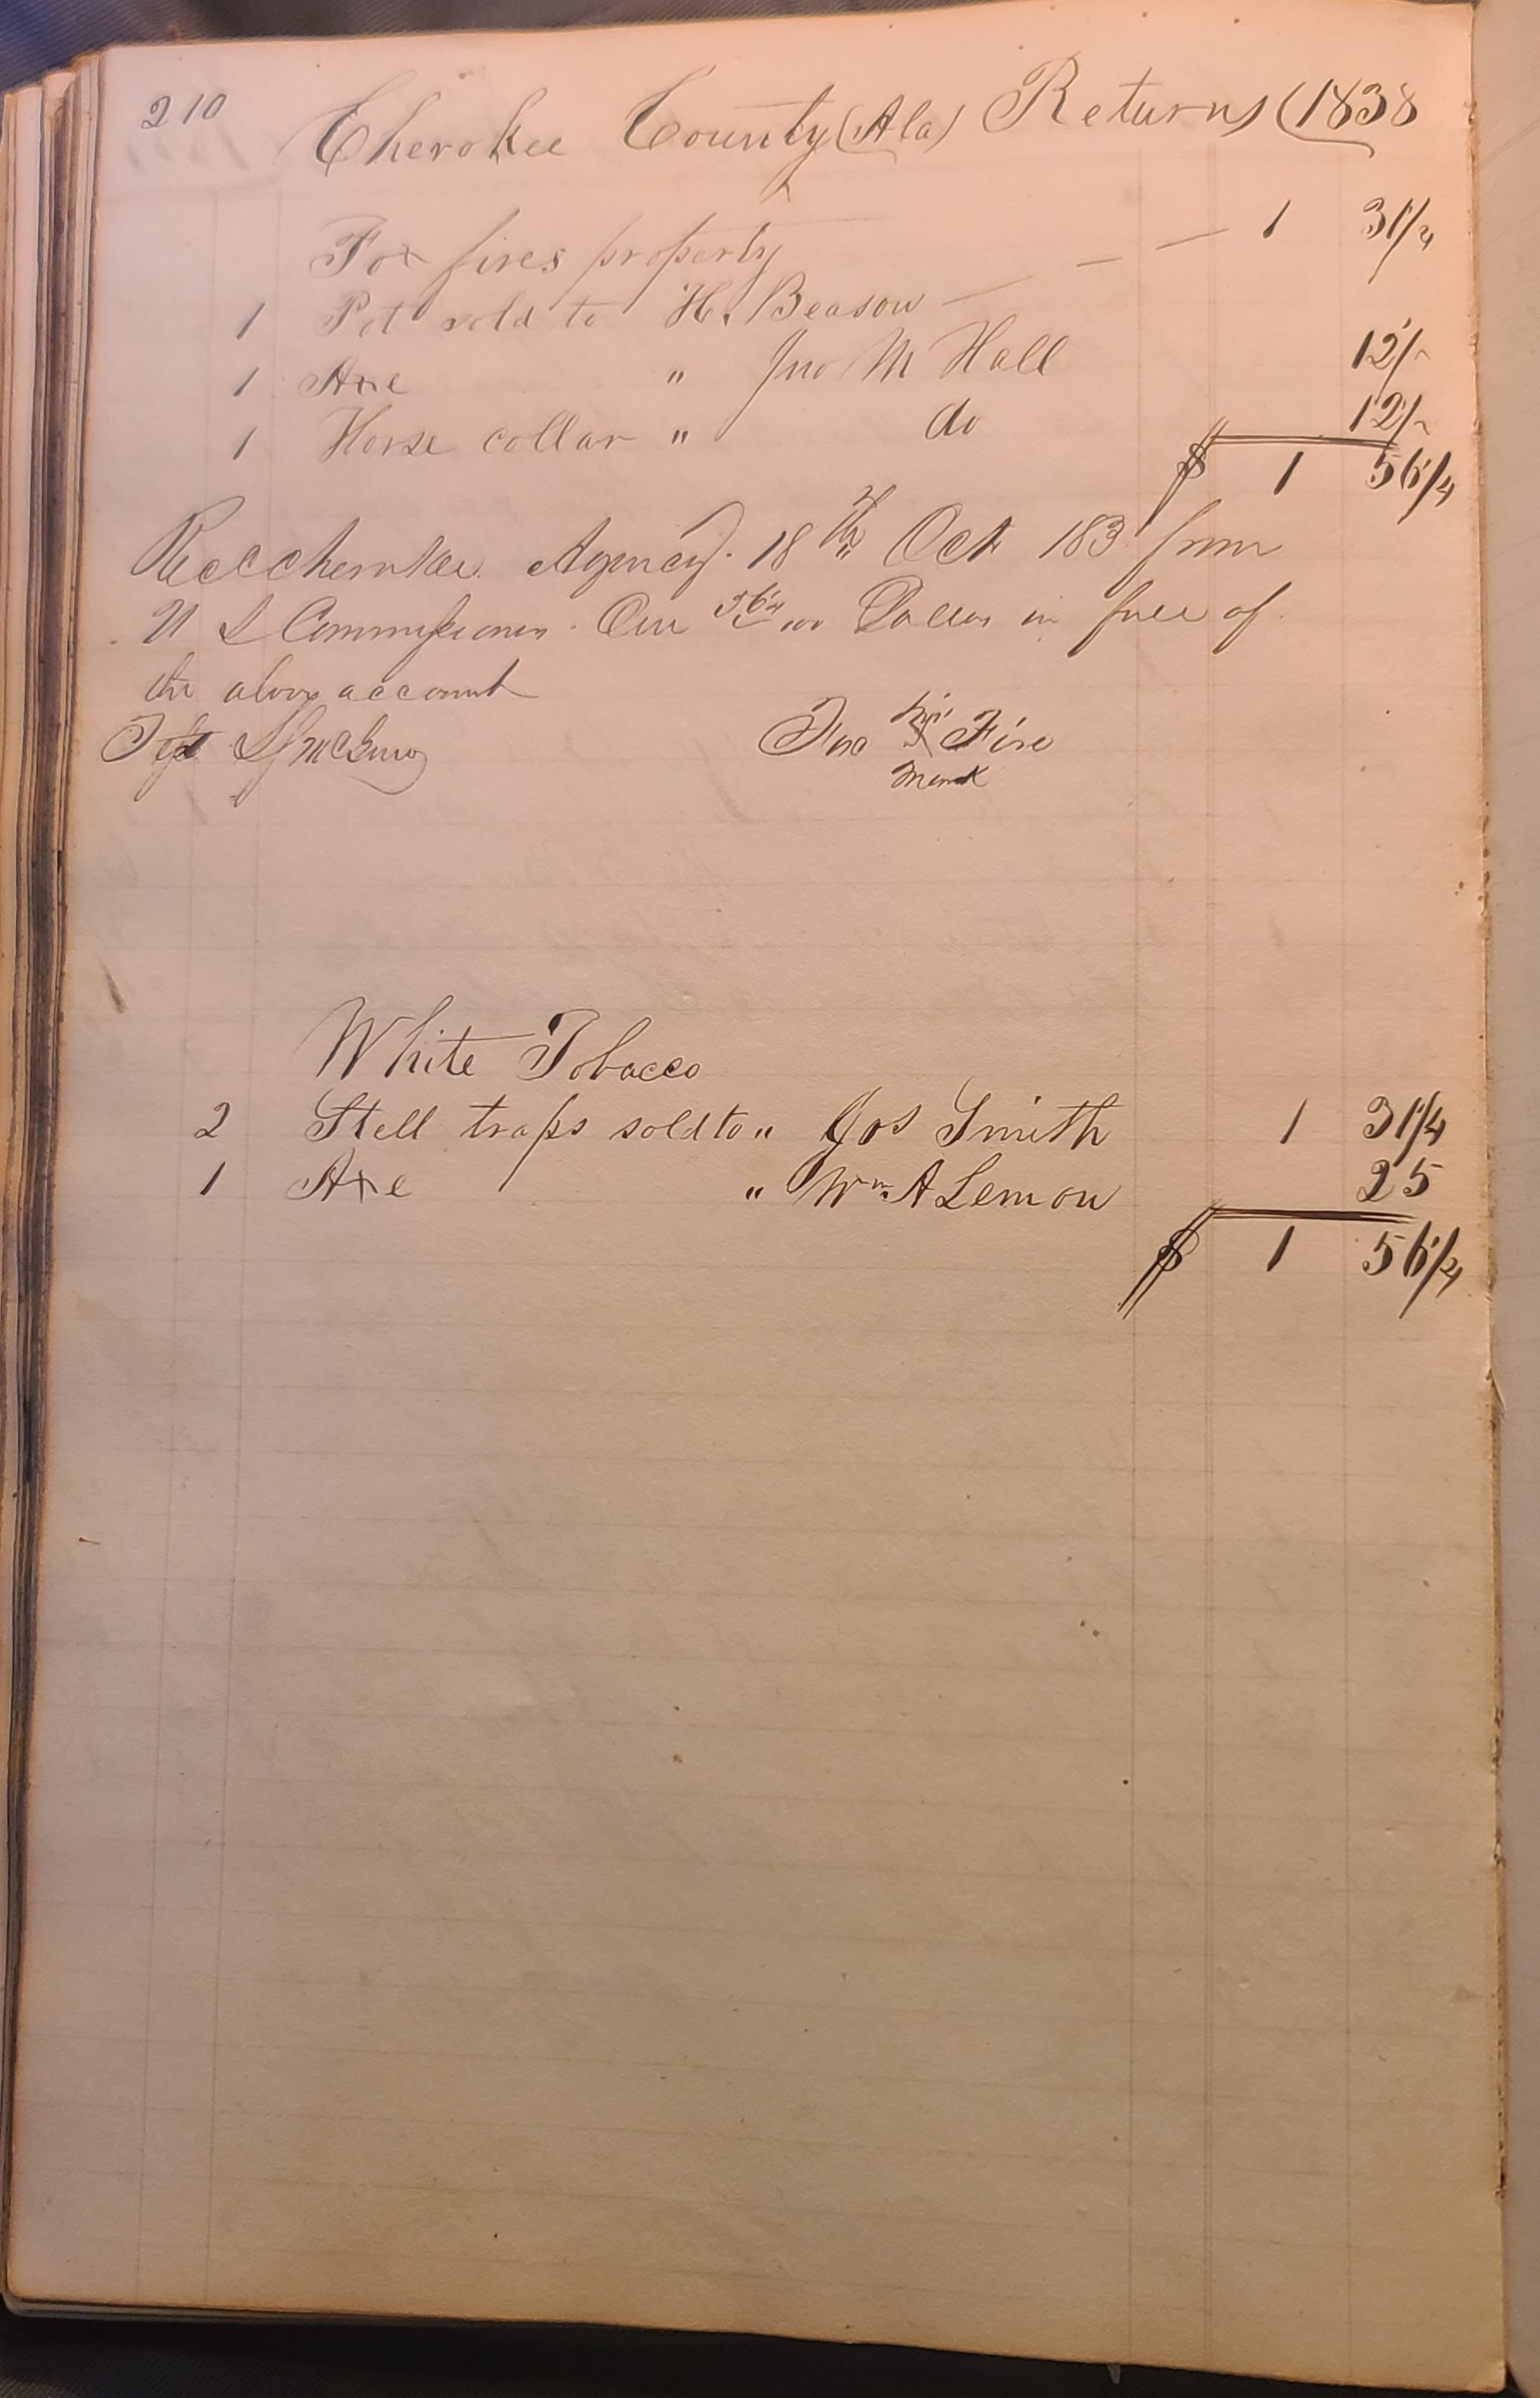 210 Cherokee County (Ala) Returns (1838
Fox fires property
1 Pot sold to H. Beason — — — 1 31 1/4
1 Axe " Jno M Hall 12 1/2
1 Horse collar " do 12 1/2
$ 1 56 1/4
Recd Cherokee Agency 18th Oct 183 from
U S Commissioners One 56 1/4/100 Dollars in full of
the above account
Test Fox his X Fire
mark
White Tobacco
2 Stell traps sold to " Jos Smith 1 31 1/4
1 Axe " Wm A Lemon 25
$ 1 56 1/4